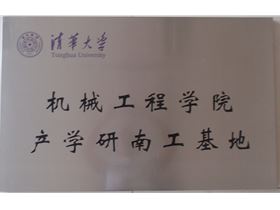 清华大学
Tsinghua University
机械工程学院
产学研南工基地